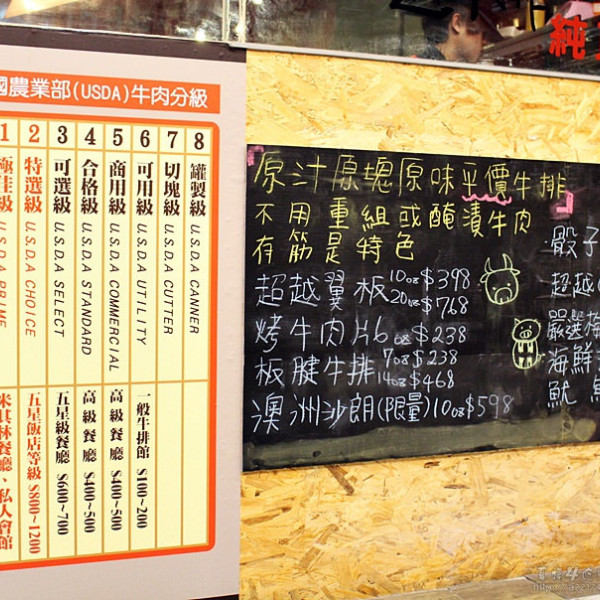 國農業部(USDA)牛肉分級
1 極佳級 U.S.D.A PRIME 米其林餐廳、私人會館
2 特選級 U.S.D.A CHOICE 五星飯店等級 $800~1200
3 可選級 U.S.D.A SELECT 五星級餐廳 $600~700
4 合格級 U.S.D.A STANDARD 高級餐廳 $400~500
5 商用級 U.S.D.A COMMERCIAL 高級餐廳 $400~500
6 可用級 U.S.D.A UTILITY 一般牛排館 $100~200
7 切塊級 U.S.D.A CUTTER
8 罐製級 U.S.D.A CANNER
純
原汁原塊原味平價牛排
不用重組或醃漬牛肉
有筋是特色
超越翼板 10oz $398
20oz $768
烤牛肉片 6oz $238
板腱牛排 7oz $238
14oz $468
澳洲沙朗(限量)10oz $598
骰子
超越
嚴選梅
海鮮
魷